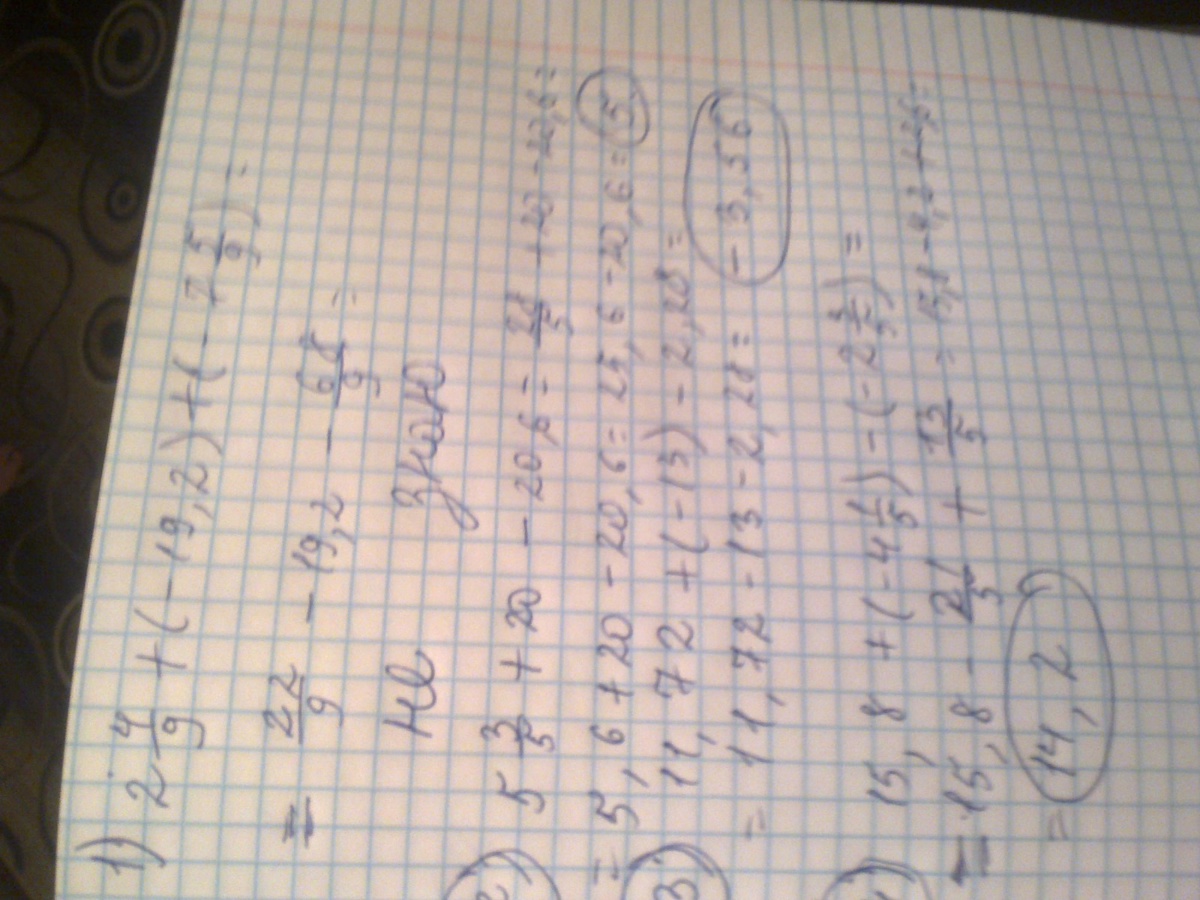 1) 2 4/9 + (-19,2) + (-7 5/9) =
= 22/9 - 19,2 - 68/9 =
не знаю
2) 5 3/5 + 20 - 20,6 = 28/5 + 20 - 20,6 =
= 5,6 + 20 - 20,6 = 25,6 - 20,6 = 5
3) 11,72 + (-13) - 2,28 =
= 11,72 - 13 - 2,28 = -3,56
15,8 + (-4 1/5) - (-2 3/5) =
= 15,8 - 21/5 + 13/5 = 15,8 - 4,2 + 2,6 =
= 14,2